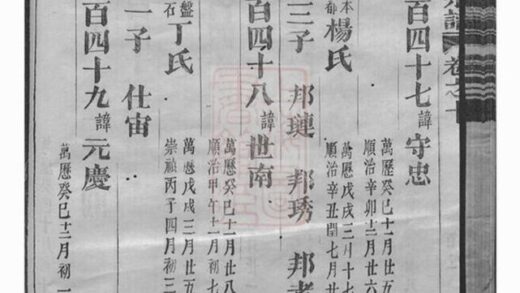 譜 卷之十
百四十七諱守忠
萬歷癸巳十一月廿五
順治辛卯十二月廿六
本都楊氏
萬歷戊戌三月十七
順治辛丑閏七月廿
三子 邦璉 邦琇 邦孝
百四十八諱世南
萬歷癸巳十二月廿八
順治甲午十二月初七
盤石丁氏
萬歷戊戌三月廿五
崇禎丙子四月初三
一子 仕宙
百四十九諱元慶
萬歷癸巳十二月初一